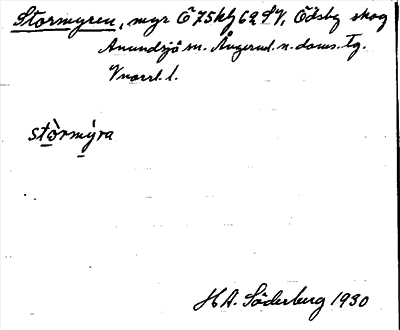 Stormyren, myr Ö75kf62SV, Östby skog
Anundsjö sn. Ångerml. n. doms. Tg.
Vnorrl. l.
stòrmýra
H A. Söderberg 1930